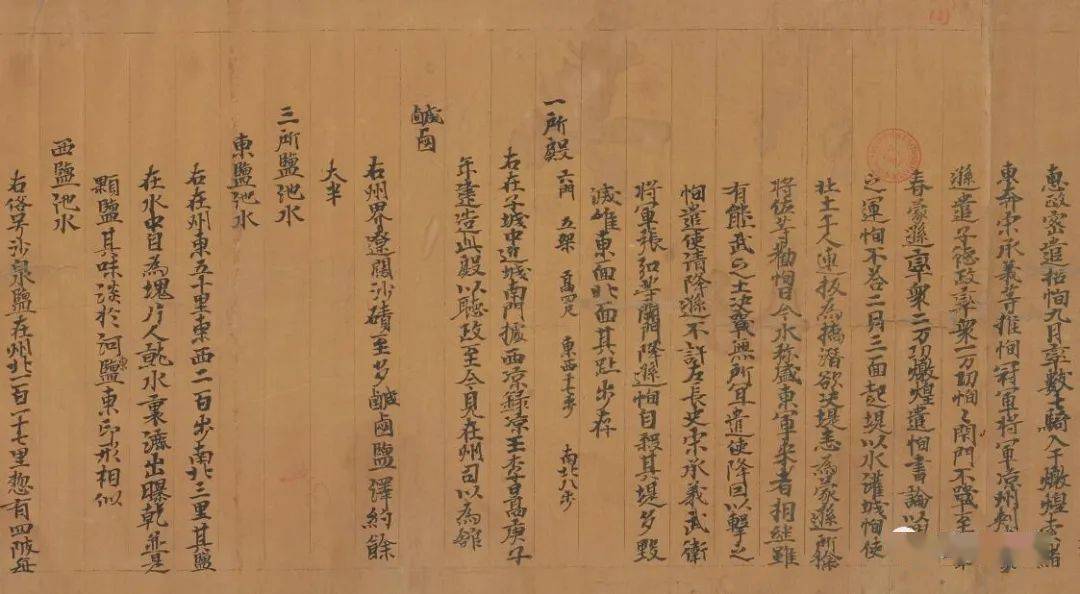 惠政密遣招恂九月率數十騎入于燉煌索緒
東奔宋承義等推恂冠軍將軍涼州
遜遣子德政率衆一万功恂〻閇門不戰至
春蒙遜率衆二万功燉煌遣恂書論以
之運恂不荅二月三面起堤以水潅城恂使
壯士千人連板為橋潜欲决堤悉為蒙遜所擒
將佐等勸恂曰今水弥盛東軍来者相継雖
有熊武之士决戰無所宜遣使降因以擊之
恂遣使請降遜不許左長史宋承義武衛
將軍張弘等開門降遜恂自殺其堤多毀
滅唯東面北面其趾步存
一所殿 六門 五架 高四尺 東西十七步 南北八步
右在子城中近城南門據西涼錄涼王李暠庚子
年建造此殿以聽政至今見在州司以為館
鹹鹵
右州界遼闊沙磧至多鹹鹵鹽澤約餘
大半
三所鹽池水
東鹽池水
右在州東五十里東西二百步南北三里其鹽
在水中自為塊片人就水裏漉出曝乾並是
顆鹽其味淡於河東鹽印形相似
西鹽池水
右俗号沙泉鹽在州北一百一十七里惣有四陂每